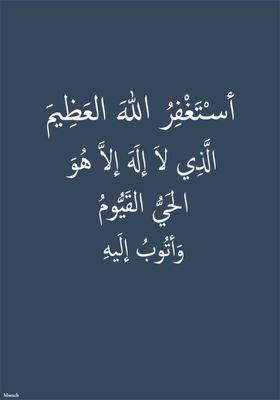 أسْتَغْفِرُ اللهَ العَظِيمَ
الَّذِي لاَ إلَهَ إلاَّ هُوَ
الحَيُّ القَيُّومُ
وَأتُوبُ إلَيهِ